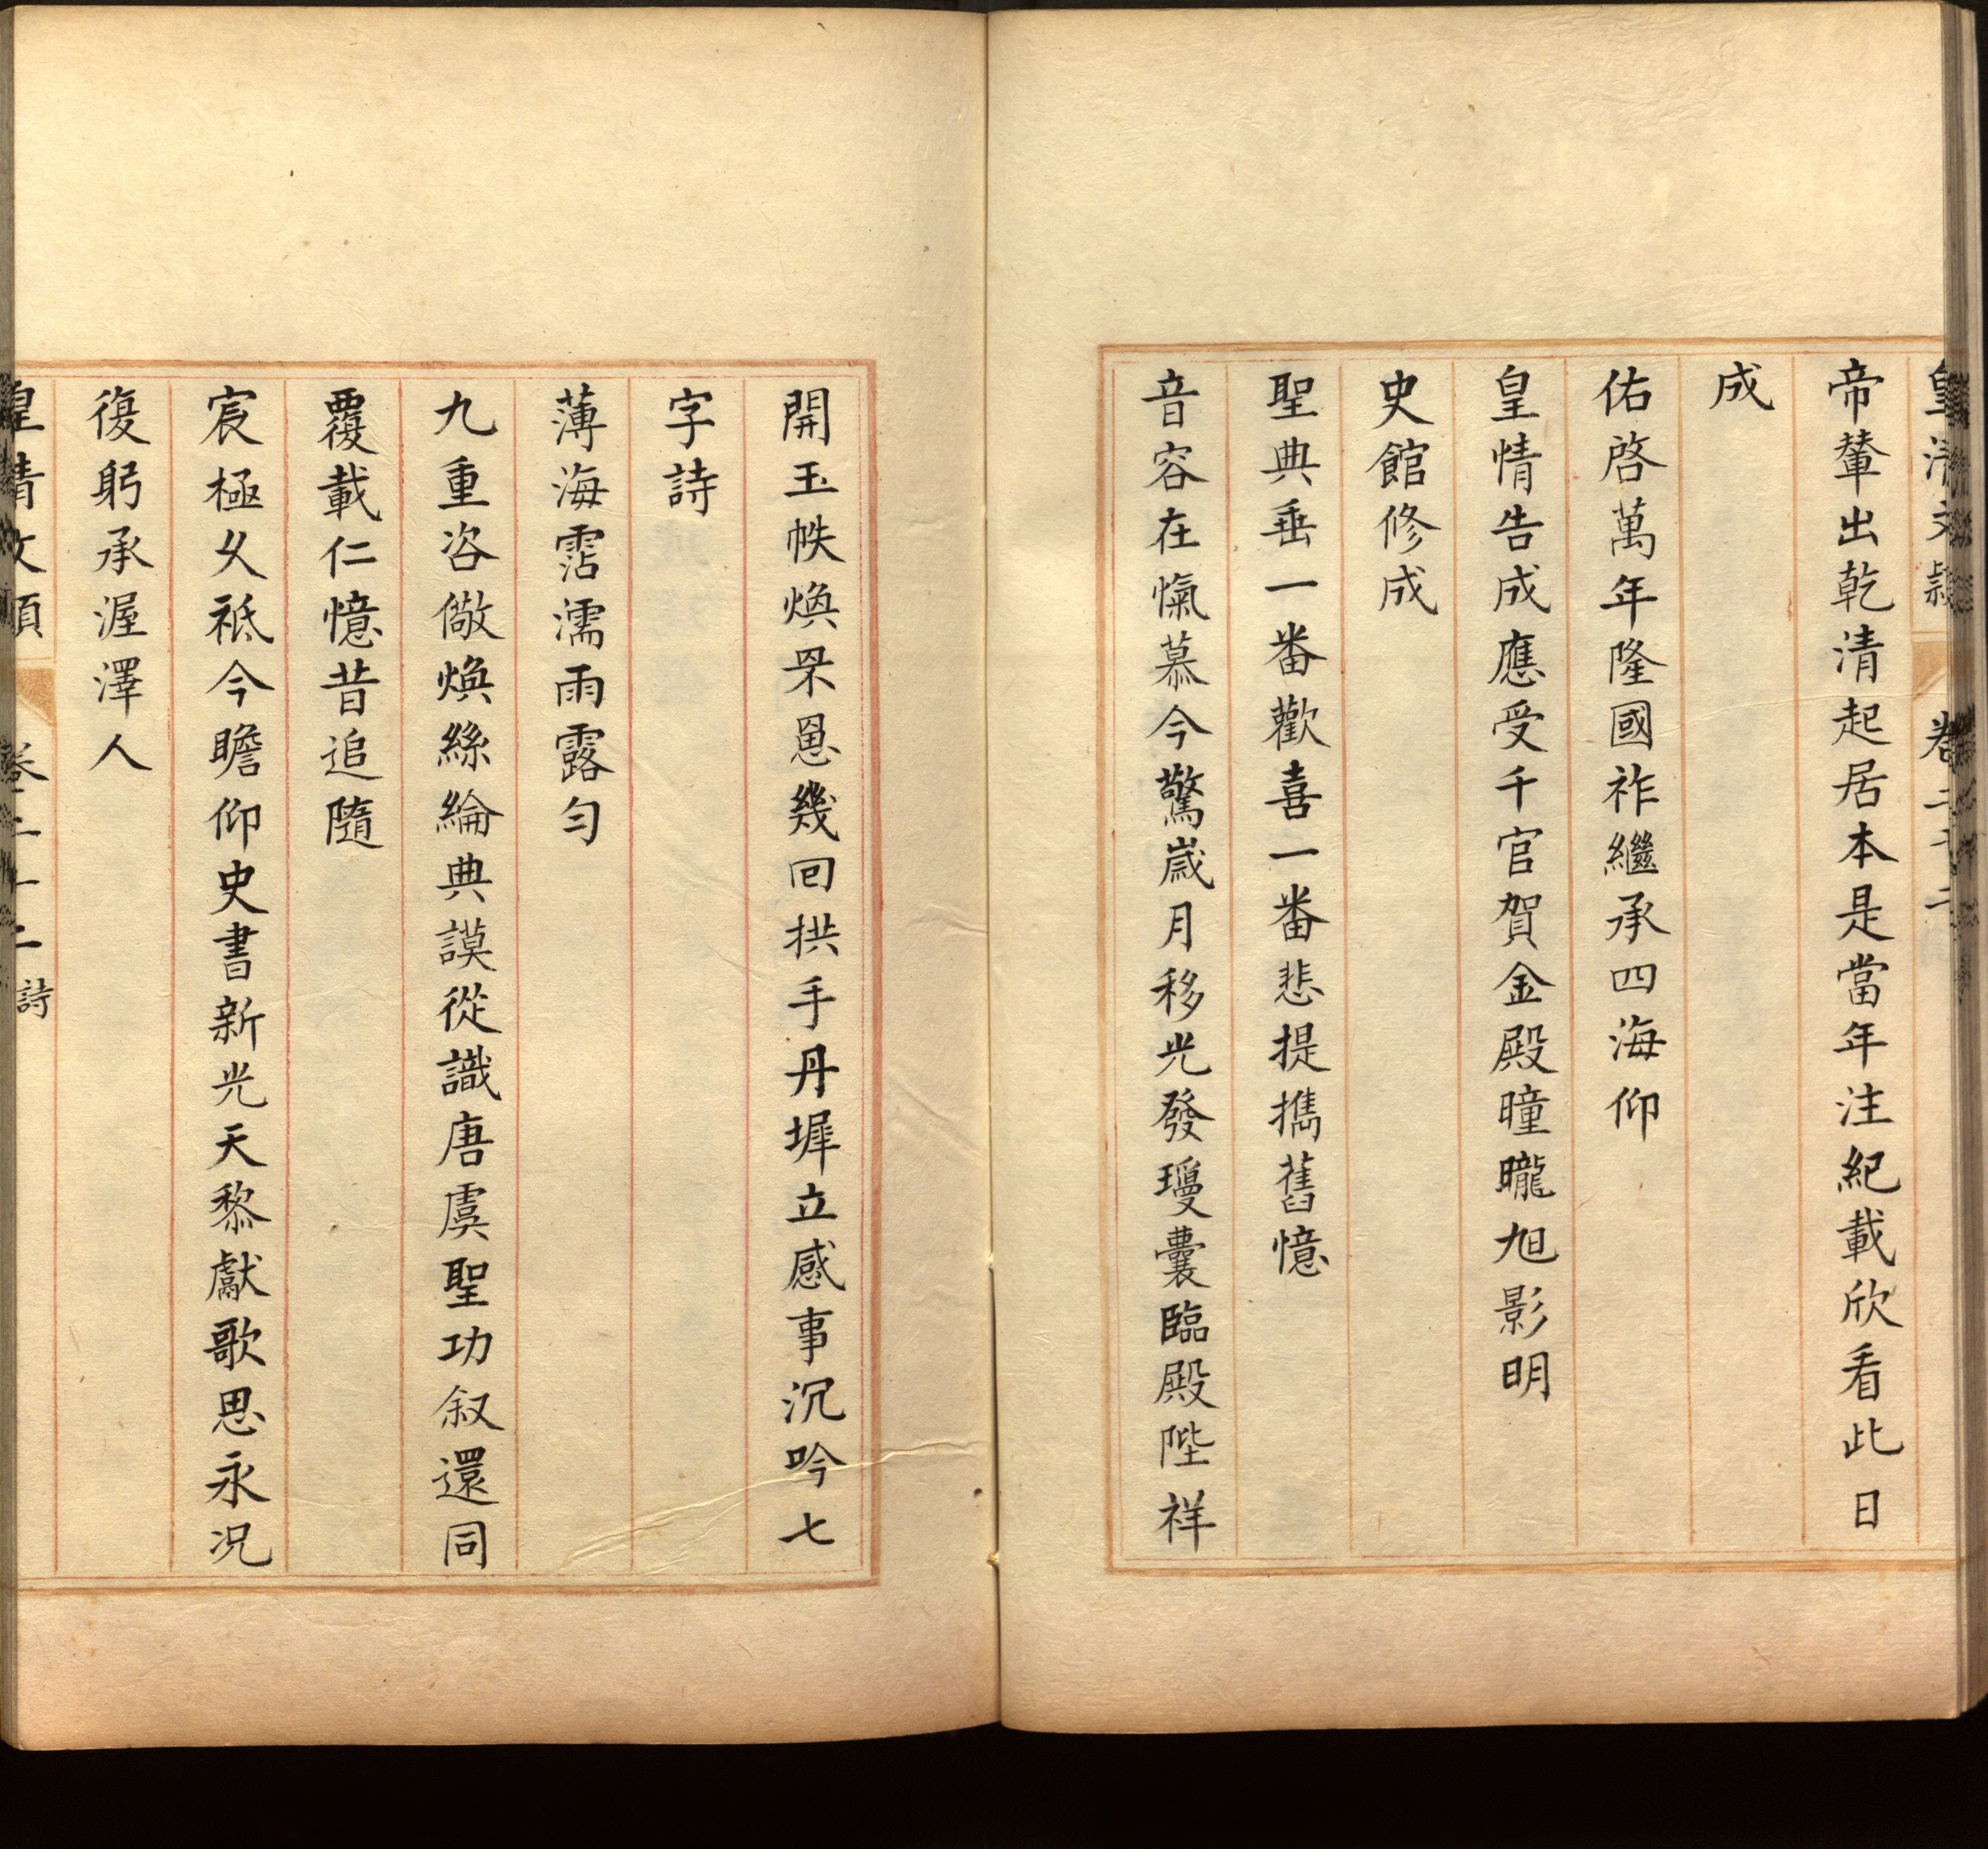 皇清文頴　卷二十二
帝輦出乾清起居本是當年注紀載欣看此日
成
佑啓萬年隆國祚繼承四海仰
皇情告成應受千官賀金殿曈曨旭影明
史館修成
聖典垂一番歡喜一番悲提攜舊憶
音容在愾慕今驚嵗月移光發瓊囊臨殿陛祥
開玉帙煥罘罳幾回拱手丹墀立感事沉吟七
字詩
薄海霑濡雨露勻
九重咨儆煥絲綸典謨從識唐虞聖功叙還同
覆載仁憶昔追隨
宸極久祗今瞻仰史書新光天黎獻歌思永况
復躬承渥澤人
皇清文頴　卷二十二　詩